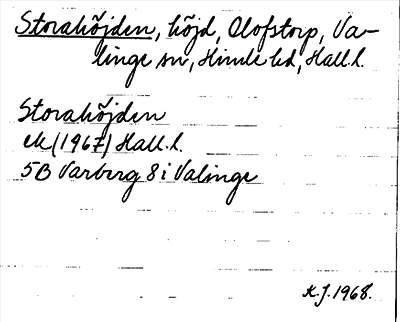 Storahöjden, höjd, Olofstorp, Va-
linge sn, Himle hd, Hall.l.
Storahöjden
ek (1967) Hall.l.
5B Varberg 8 i Valinge
K.J. 1968.